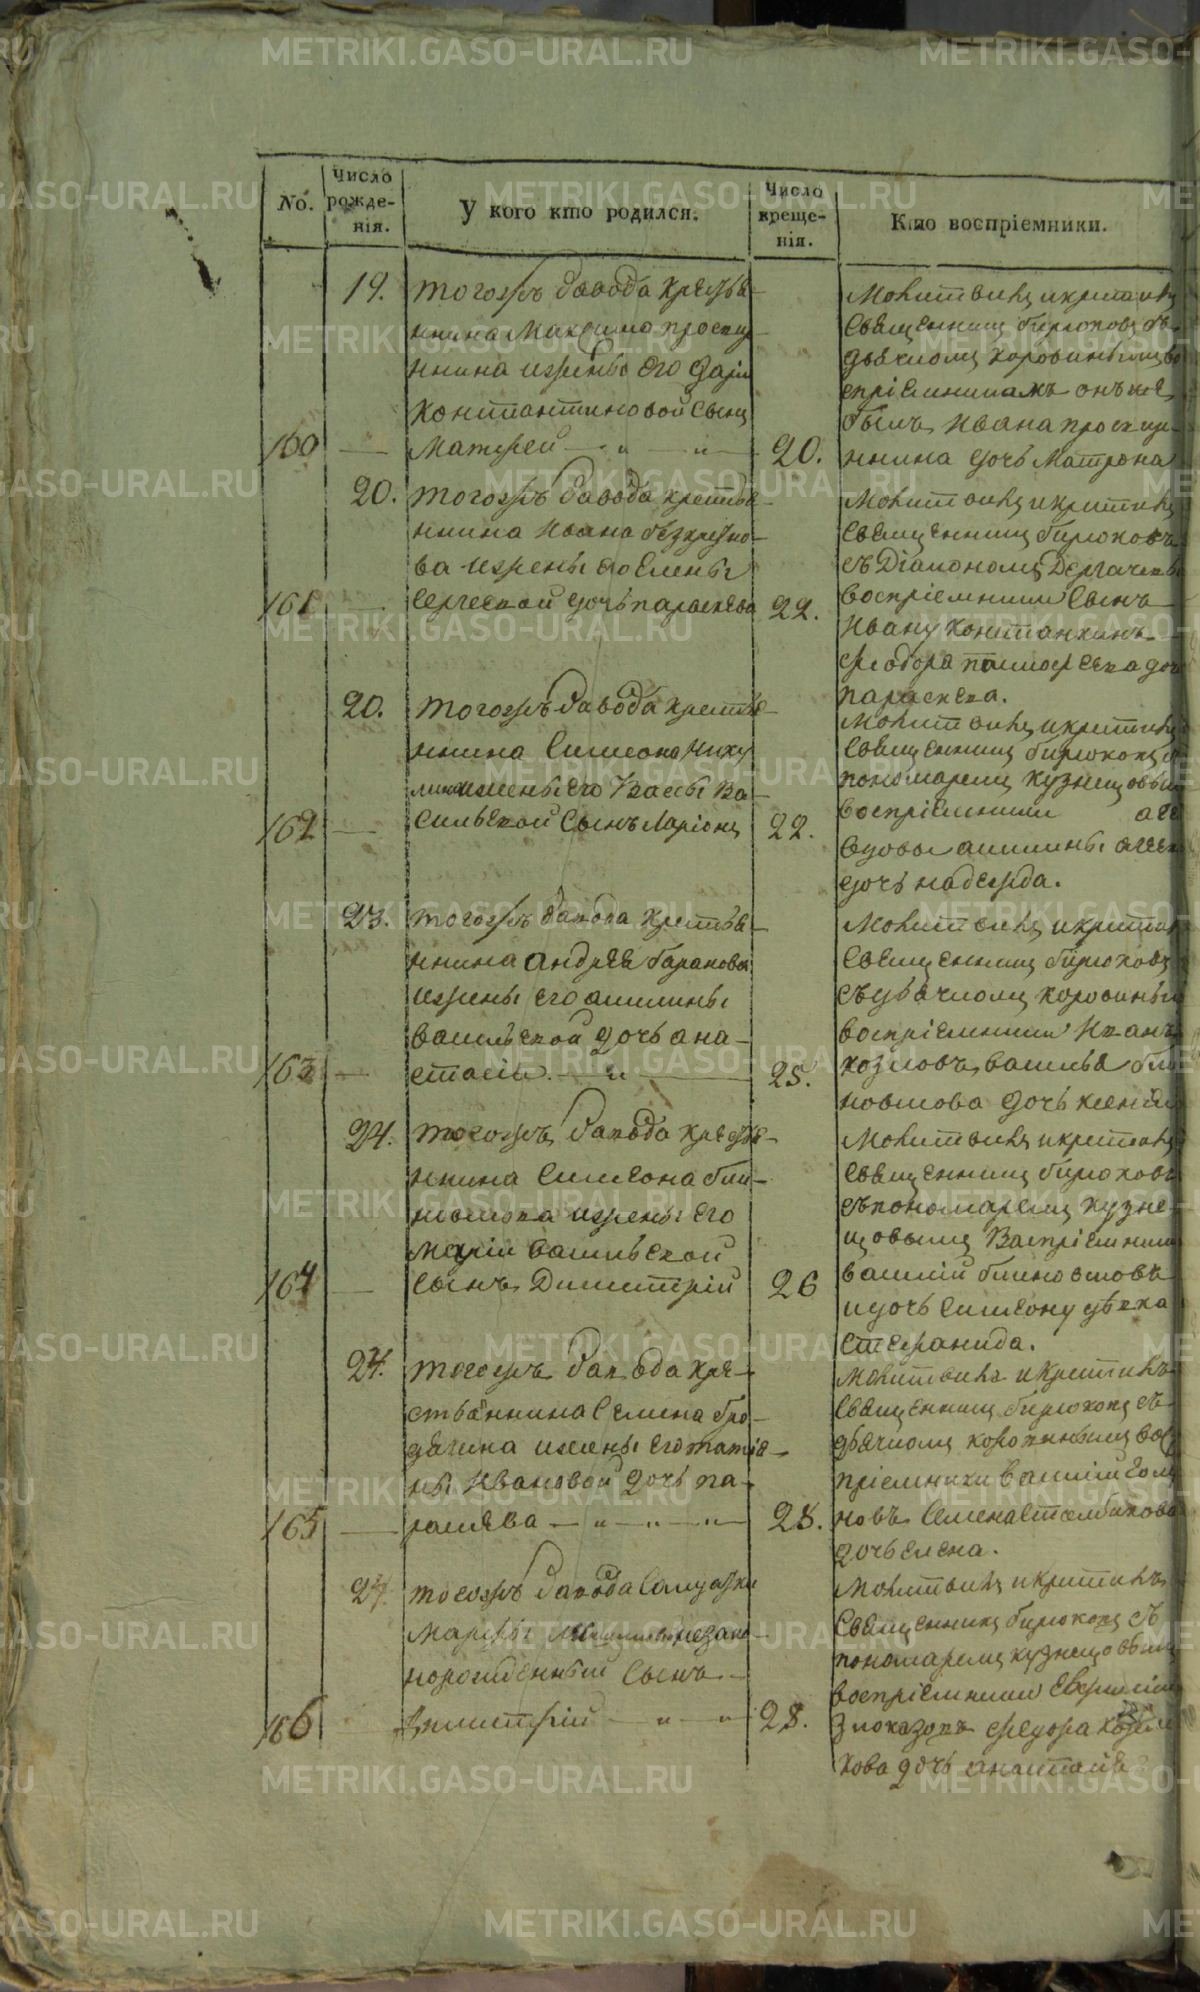 No.
Число
рожде-
нія.
У кого кто родился.
Число
креще-
нія.
Кто воспріемники.
19. тогожъ завода крестья-
нина Максима проскур-
нина ижены его Даріи
Константиновой сынъ
160 — Матфей — „ — „ — 20.
Молитвилъ икрестилъ
Священникъ бирюковъ съ
дьячкомъ коровинымъ во
спріемникамъ онъ же
былъ Ивана проскур-
нина дочь Матрона
20. тогожъ завода крестья-
нина Ивана
ва ижены его Елены
161 — Сергеевой дочь параскева 22.
Молитвилъ икрестилъ
Священникъ бирюковъ
съ Діакономъ Дергачевы
воспріемники Сынъ
Иванъ Константинъ
Феодора дочь
параскева.
20. тогожъ завода крестья-
нина Симеона Нику
лина ижены его Вассы Ва-
162 — сильевой Сынъ Ларіонъ 22.
Молитвилъ икрестилъ
Священникъ бирюковъ с
пономаремъ кузнецовым
воспріемники
вдовы акилины
дочь надежда.
23. тогожъ завода крестья-
нина андрея баранова
ижены его акилины
васильевой дочь ана-
163 — стасія. — „ — 25.
Молитвилъ икрестилъ
Священникъ бирюковъ
съ дьячкомъ коровиным
воспріемники Иванъ
козловъ, василья бли
новскова дочь ксенія
24. тогожъ завода крестья-
нина Симеона бли-
новскова ижены его
маріи васильевой
164 — Сынъ Димитрій 26
Молитвилъ икрестилъ
Священникъ бирюковъ
съ пономаремъ кузне
цовымъ Воспріемники
василій блиновсковъ
и дочь Симеону девка
Стефанида.
24. тогожъ завода кре-
стьянина Семена бро-
дягина ижены его татіа-
ны Ивановой дочь па-
165 — раскева — „ — „ — „ — 28.
Молитвилъ икрестилъ
Священникъ бирюковъ съ
дьячкомъ коровинымъ вос
пріемники василій
новъ Семена
дочь Елена.
24. тогожъ завода Солдатки
Марфы незако-
норожденный сынъ —
166 — Димитрій — „ — „ 28.
Молитвилъ икрестилъ
Священникъ бирюковъ съ
пономаремъ кузнецовым
воспріемники Евфимій
Злоказовъ Федора
кова дочь анастасія
METRIKI.GASO-URAL.RU